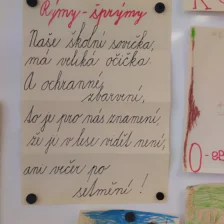 Rýmy - šprýmy
Naše školní sovička,
má veliká očička
A ochranné
zbarvení,
to je pro nás znamení,
že je v lese vidět není,
ani večer po
setmění!